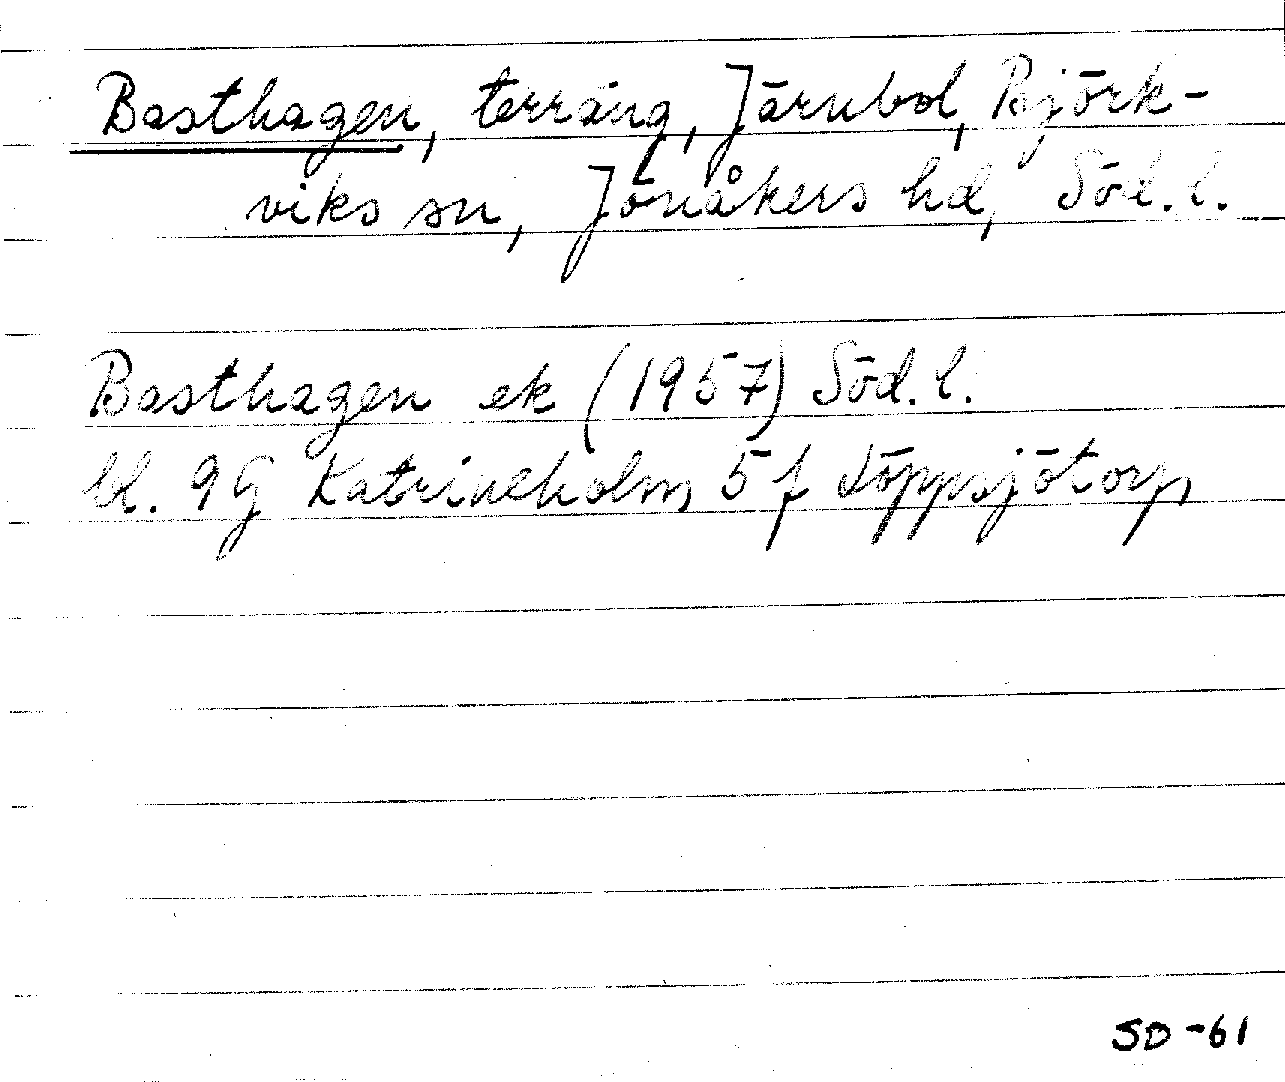 Basthagen, terräng, Järnbol, Björk-
viks sn, Jönåkers hd, Söd. l.
Basthagen ek (1957) Söd. l.
bl. 9G Katrineholm 5 f Löppsjötorp
SD-61